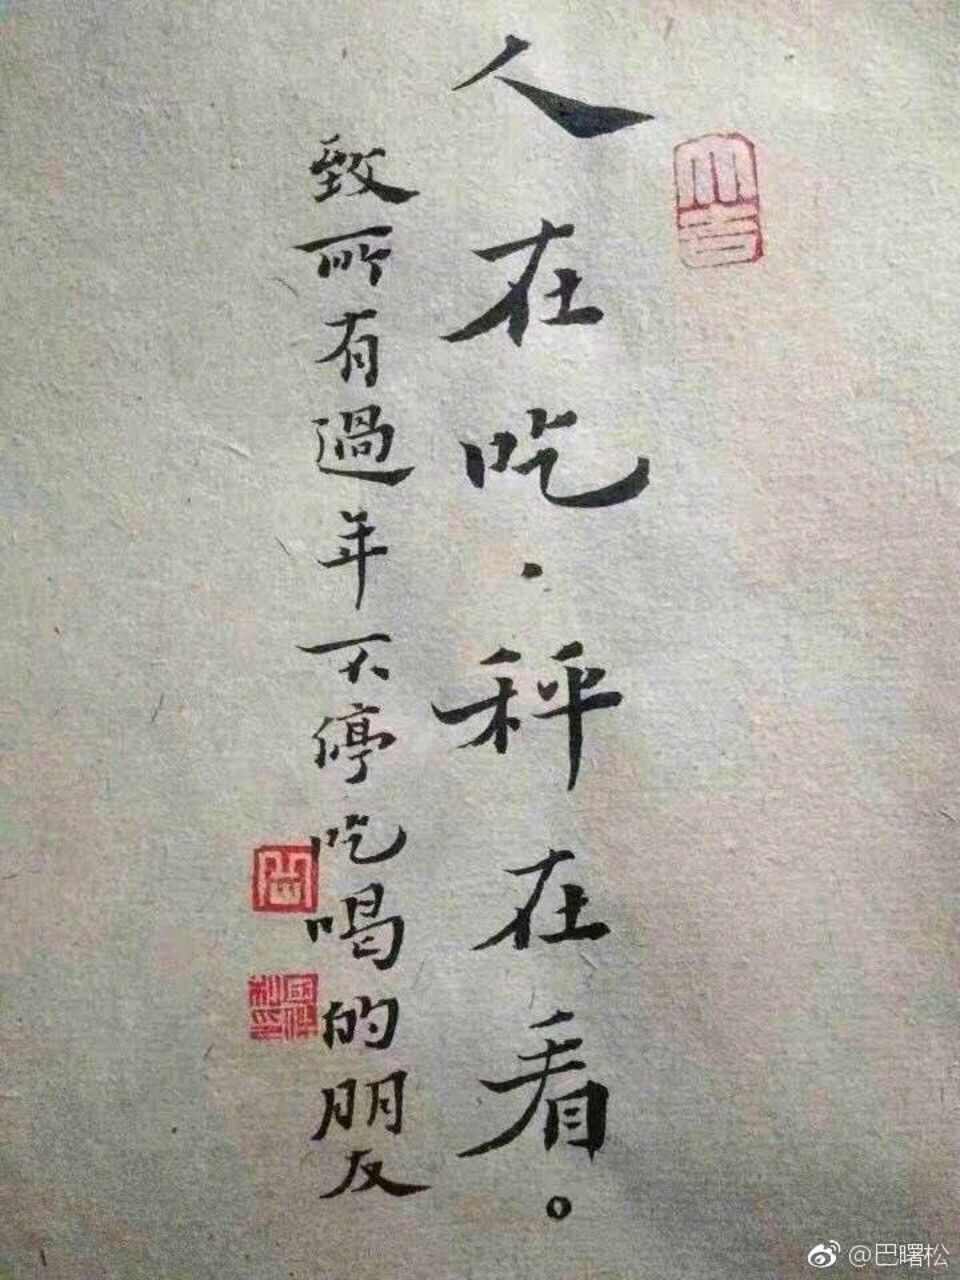 人在吃．秤在看。
致所有過年不停吃喝的朋友
@巴曙松